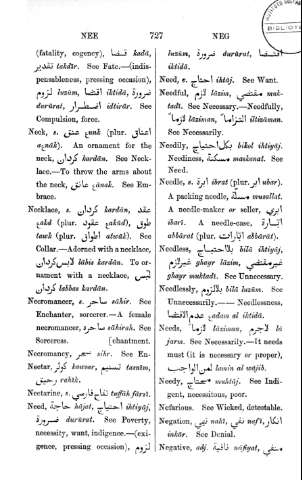 NEE 727 NEG
(fatality, cogency), قضا kadá,
تقدير takdír. See Fate.—(indis-
pensableness, pressing occasion),
لزوم luzúm, اقتضا iktidá, ضرورة
durúrat, اضطرار idtirár. See
Compulsion, force.
Neck, s. عنق ąunk (plur. اعناق
aąnák). An ornament for the
neck, گردان kardán. See Neck-
lace.—To throw the arms about
the neck, عناق ąanák. See Em-
brace.
Necklace, s. گردان kardán, عقد
ąakd (plur. عقود ąukúd), طوق
tawk (plur. اطواق atwák). See
Collar.—Adorned with a necklace,
لابس گردان lábis kardán. To or-
nament with a necklace, لبس
گردان labbas kardán.
Necromancer, s. ساحر sáhir. See
Enchanter, sorcerer.—A female
necromancer, ساحرة sáhirah. See
Sorceress. [chantment.
Necromancy, سحر sihr. See En-
Nectar, كوثر kawsar, تسنيم tasním,
رحيق rahík.
Nectarine, s. تفاح فارسي tuffáh fársí.
Need, حاجة hájat, احتياج ihtiyáj,
ضرورة durúrat. See Poverty,
necessity, want, indigence.—(exi-
gence, pressing occasion), لزوم
luzúm, ضرورة durúrat, اقتضا
iktidá.
Need, s. احتاج ihtáj. See Want.
Needful, لازم lázim, مقتضي muk-
tadí. See Necessary.—Needfully,
لازما láziman, التزاما iltizáman.
See Necessarily.
Needily, بكل احتياج bikul ihtiyáj.
Neediness, مسكنة maskanat. See
Need.
Needle, s. ابرة ibrat (plur. ابر ubar).
A packing needle, مسلة musallat.
A needle-maker or seller, ابري
ibarí. A needle-case,
abbárat (plur. abbárát).
Needless, بلا احتياج bilá ihtiyáj,
غير لازم ghayr lázim, غير مقتضي
ghayr muktadí. See Unnecessary.
Needlessly, بلا لزوم bilá luzúm. See
Unnecessarily.—— Needlessness,
عدم الاقتضا ąadam al iktidá.
Needs, لازما láziman, لا جرم lá
jaram. See Necessarily.—It needs
must (it is necessary or proper),
لمن الواجب lamin al wájib.
Needy, محتاج muhtáj. See Indi-
gent, necessitous, poor.
Nefarious. See Wicked, detestable.
Negation, نهي nahí, نفي nafí, انكار
inkár. See Denial.
Negative, adj. نافية náfiyat, منفي